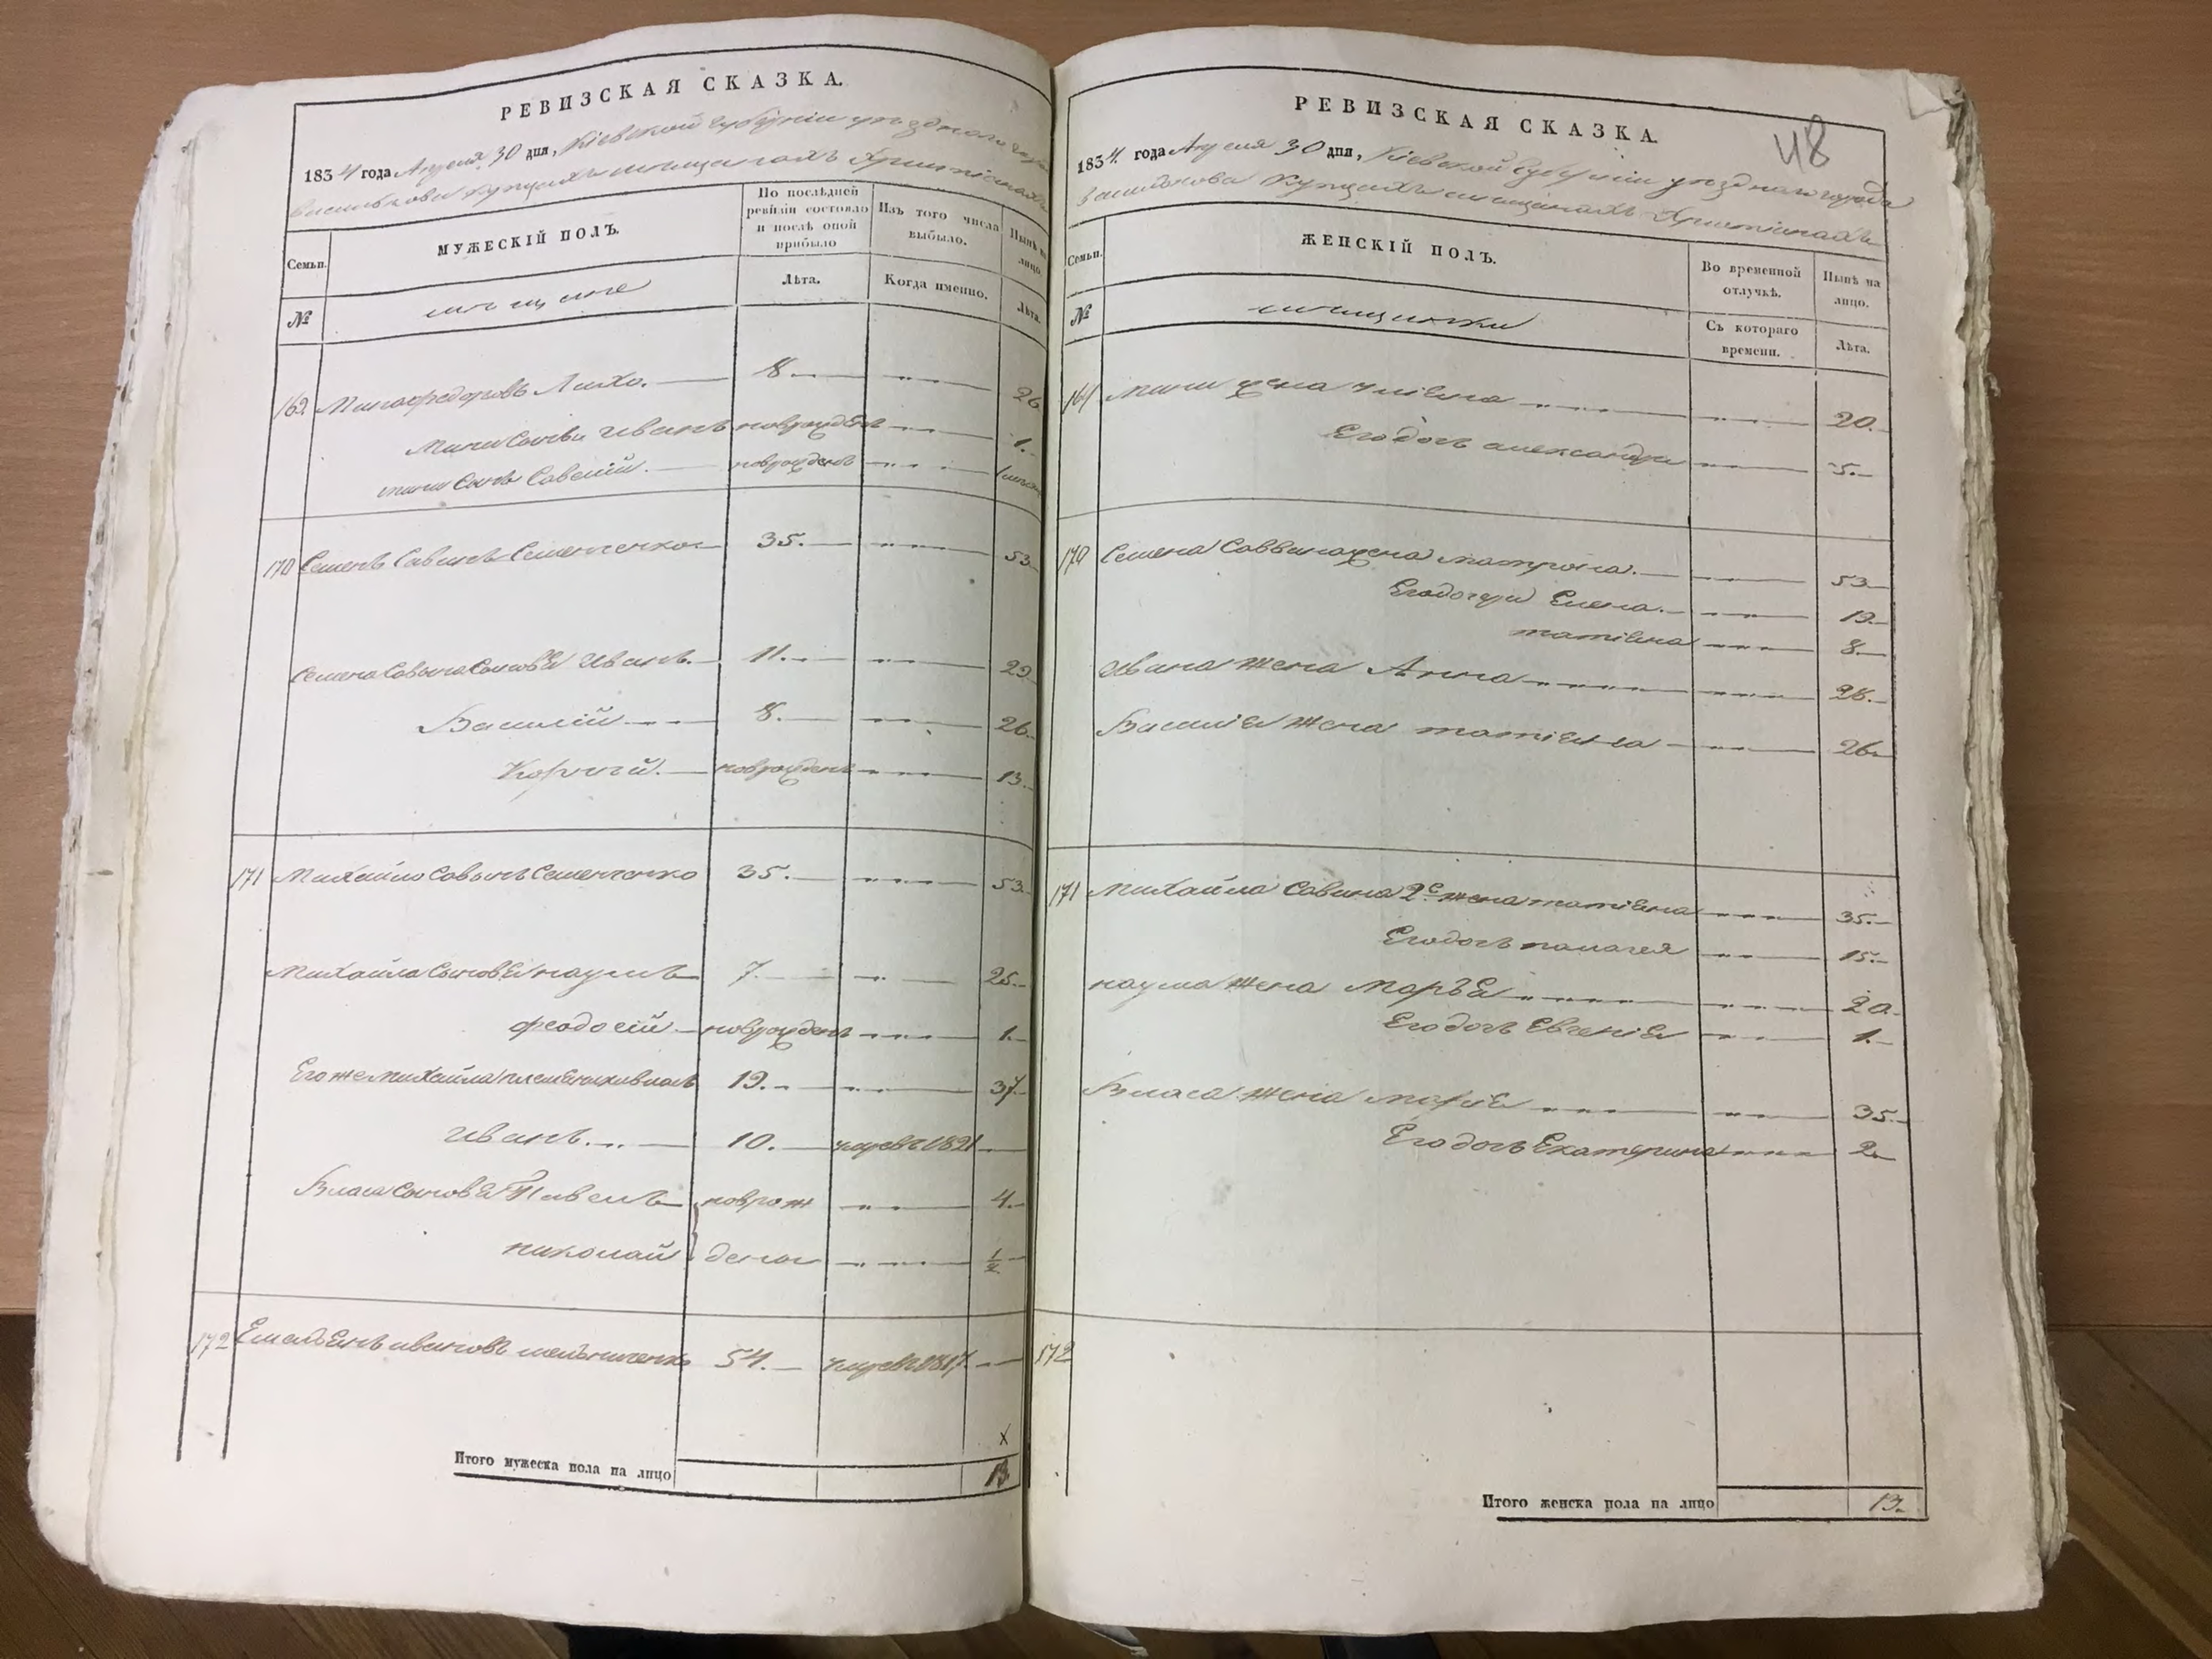 РЕВИЗСКАЯ СКАЗКА.
1834 года Апреля 30 дня, Кіевской губерніи уезднаго города
Василькова купцахъ мещанахъ Христіянахъ
Семьи.
МУЖЕСКІЙ ПОЛЪ.
По послѣдней ревизіи состояло и послѣ оной прибыло
Изъ того числа выбыло.
Нынѣ на лицо.
№
мещане
Лѣта.
Когда именно.
Лѣта.
169 Мина Федоровъ Лихо. 8. 26
Мини сынъ Иванъ новрожденъ 1.
Мини сынъ Савелій. новрожденъ
170 Семенъ Савинъ Семенченко 35. 53
Семена Савина сыновья Иванъ. 11. 29.
Василій 8. 26.
Корній. новрожденъ 13.
171 Михайло Савинъ Семенченко 35. 53.
Михайла сыновья Наумъ 7. 25.
Феодосій новрожденъ 1.
Его же Михайла племянники Власъ 19. 37
Иванъ. 10. умре въ 1821
Власа сыновья Павелъ новрож 4.
Николай дены 1/2
172 Емельянъ Ивановъ Мельниченко 54. умре въ 1817.
х
Итого мужеска пола на лицо 13
РЕВИЗСКАЯ СКАЗКА.
48
1834. года Апреля 30 дня, Кіевской Губерніи уезднаго города
Василькова Купцахъ мещанахъ Христіянахъ
Семьи.
ЖЕНСКІЙ ПОЛЪ.
Во временной отлучкѣ.
Нынѣ на лицо.
№
мещанки
Съ котораго времени.
Лѣта.
169 Мини жена Уліяна 20.
Его дочь Александра 5.
170 Семена Саввина жена Матрона. 53
Его дочери Елена. 19.
Татіяна 8.
Ивана жена Анна 28.
Василія жена Татіяна 26.
171 Михайла Савина 2я жена Татіяна 35.
Его дочь Палагея 15.
Наума жена Марья 20.
Его дочь Евгенія 1.
Власа жена Марія 35.
Его дочь Екатерина 2.
172
Итого женска пола на лицо 13.